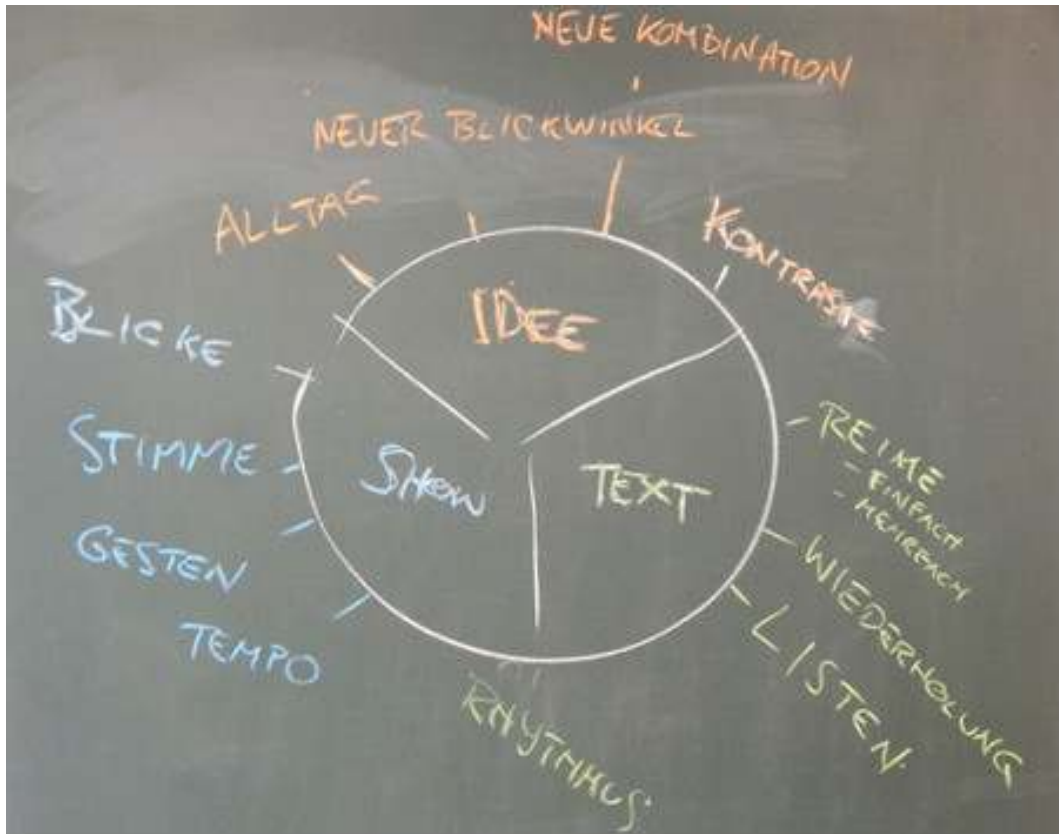 NEUE KOMBINATION
NEUER BLICKWINKEL
ALLTAG
KONTRASTE
IDEE
BLICKE
STIMME
GESTEN
TEMPO
SHOW
TEXT
REIME
- EINFACH
- MEHRFACH
WIEDERHOLUNG
LISTEN
RHYTHMUS